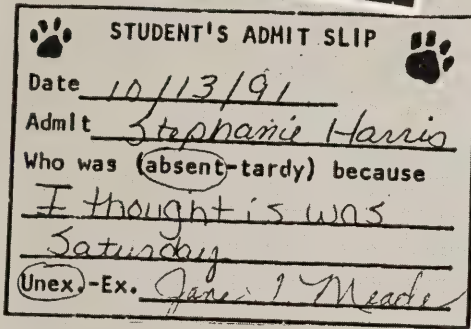 STUDENT'S ADMIT SLIP
Date 10/13/91
Admit Stephanie Harris
Who was (absent-tardy) because
I thought is was
Saturday
Unex.-Ex. Jane I Meade